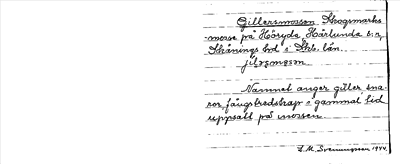 Gillersmossen Skogsmarks-
mosse på Höryda, Härlunda s:n,
Skånings hd i Skb. län.
Namnet anger giller, sna-
ror, fångstredskap i gammal tid
uppsatt på mossen.
L.M. Svenungsson 1944.